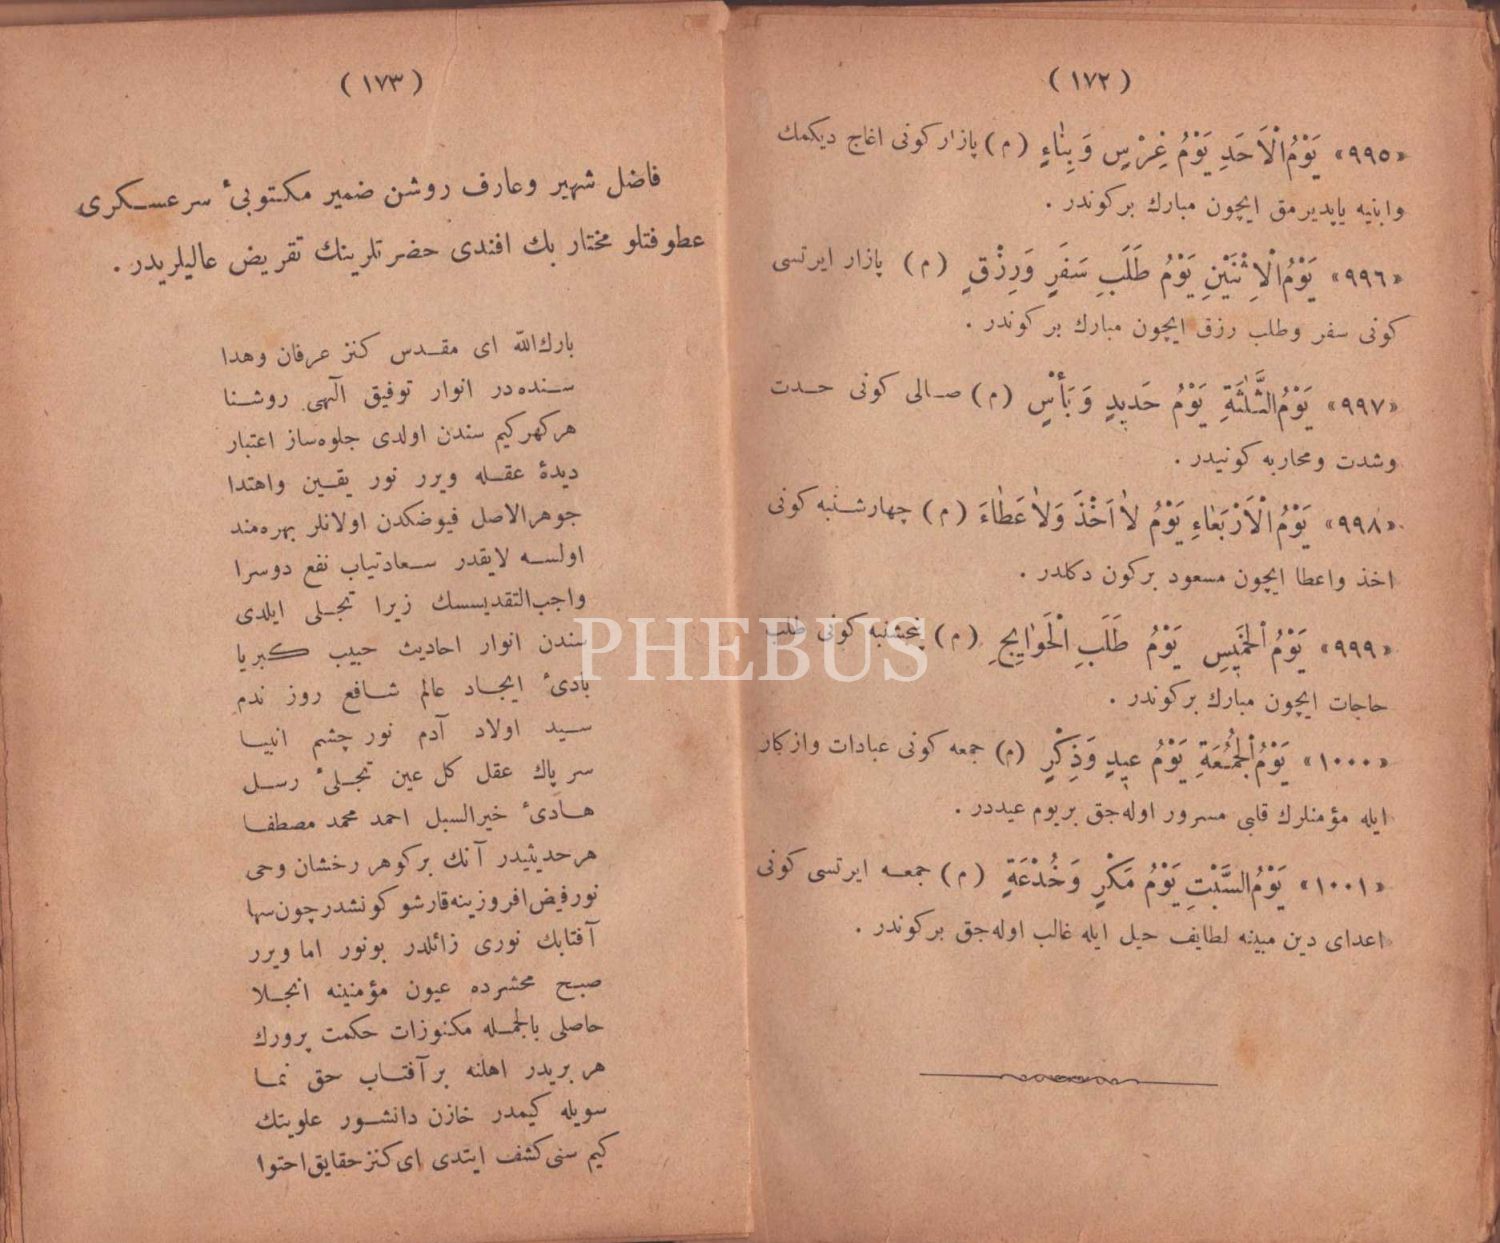 ( ١٧٢ )
«٩٩٥» يَوْمُ الْاَحَدِ يَوْمُ غِرْسٍ وَ بِنٰاءٍ ( م ) پازار كونى اغاج ديكمك
وابنيه ياپديرمق ايچون مبارك بركوندر .
«٩٩٦» يَوْمُ الْاِثْنَيْنِ يَوْمُ طَلَبِ سَفَرٍ وَرِزْقٍ ( م ) پازار ايرتسى
كونى سفر وطلب رزق ايچون مبارك بر كوندر .
«٩٩٧» يَوْمُ الثَّلٰثَةِ يَوْمُ حَدِيدٍ وَ بَأْسٍ ( م ) صالى كونى حدت
وشدت ومحاربه كونيدر .
«٩٩٨» يَوْمُ الْاَرْبَعٰاءِ يَوْمُ لاٰ اَخْذَ وَلاٰ عَطٰاءَ ( م ) چهارشنبه كونى
اخذ واعطا ايچون مسعود بركون دكلدر .
«٩٩٩» يَوْمُ الْخَمِيسِ يَوْمُ طَلَبِ الْحَوٰايِجِ ( م ) پنجشنبه كونى طلب
حاجات ايچون مبارك بركوندر .
«١٠٠٠» يَوْمُ الْجُمُعَةِ يَوْمُ عِيدٍ وَذِكْرٍ (م) جمعه كونى عبادات واز كار
ايله مؤمنلرك قلبى مسرور اوله جق بر يوم عيددر .
«١٠٠١» يَوْمُ السَّبْتِ يَوْمُ مَكْرٍ وَخُدْعَةٍ ( م ) جمعه ايرتسى كونى
اعداى دين مبينه لطايف حيل ايله غالب اوله جق بركوندر .
( ١٧٣ )
فاضل شهير وعارف روشن ضمير مكتوبىٔ سرعسكرى
عطوفتلو مختار بك افندى حضرتلرينك تقريض عاليلريدر .
بارك الله اى مقدس كنز عرفان وهدا
سنده در انوار توفيق آلهى روشنا
هر كهر كيم سندن اولدى جلوه ساز اعتبار
ديدهٔ عقله ويرر نور يقين واهتدا
جوهر الاصل فيوضكدن اولانلر بهره مند
اولسه لايقدر سعادتياب نفع دوسرا
واجب التقديسسك زيرا تجلى ايلدى
سندن انوار احاديث حبيب كبريا
بادىٔ ايجاد عالم شافع روز ندم
سيد اولاد آدم نور چشم انبيا
سر پاك عقل كل عين تجلىٔ رسل
هادىٔ خير السبل احمد محمد مصطفا
هر حديثيدر آنك بر كوهر رخشان وحى
نور فيض افروزينه قارشو كونشدر چون سها
آفتابك نورى زائلدر بو نور اما ويرر
صبح محشرده عيون مؤمنينه انجلا
حاصلى بالجمله مكنوزات حكمت پرورك
هر بريدر اهلنه بر آفتاب حق نما
سويله كيمدر خازن دانشور علويتك
كيم سنى كشف ايتدى اى كنز حقايق احتوا
PHEBUS